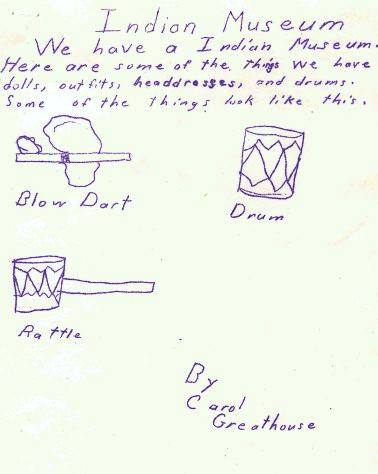 Indian Museum
We have a Indian Museum.
Here are some of the things we have
dolls, outfits, headdresses, and drums.
Some of the things look like this.
Blow Dart
Drum
Rattle
By
Carol
Greathouse